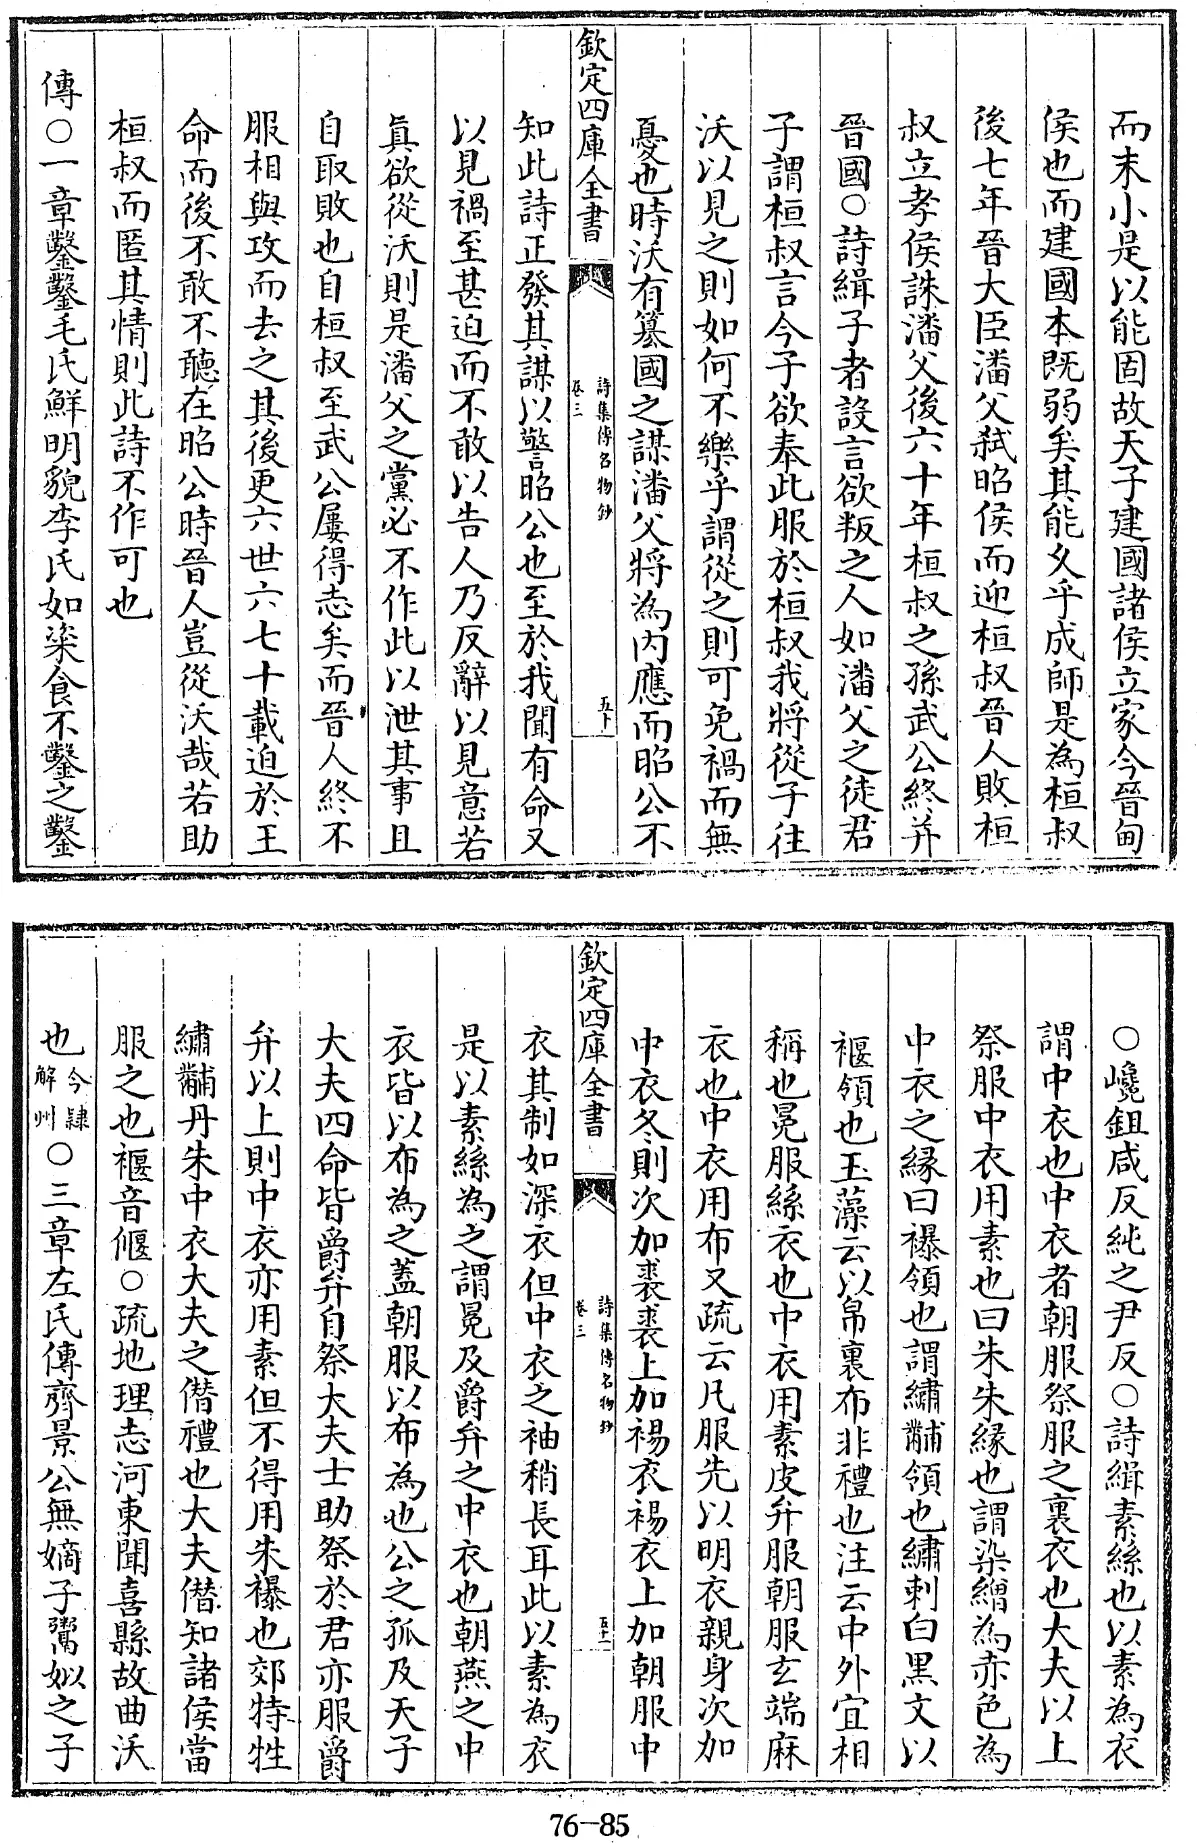 而末小是以能固故天子建國諸侯立家今晉甸
侯也而建國本既弱矣其能久乎成師是為桓叔
後七年晉大臣潘父弒昭侯而迎桓叔晉人敗桓
叔立孝侯誅潘父後六十年桓叔之孫武公終并
晉國○詩緝子者設言欲叛之人如潘父之徒君
子謂桓叔言今子欲奉此服於桓叔我將從子往
沃以見之則如何不樂乎謂從之則可免禍而無
憂也時沃有篡國之謀潘父將為内應而昭公不
欽定四庫全書
詩集傳名物鈔
卷三
五十
知此詩正發其謀以警昭公也至於我聞有命又
以見禍至甚迫而不敢以告人乃反辭以見意若
真欲從沃則是潘父之黨必不作此以泄其事且
自取敗也自桓叔至武公屢得志矣而晉人終不
服相與攻而去之其後更六世六七十載迫於王
命而後不敢不聽在昭公時晉人豈從沃哉若助
桓叔而匿其情則此詩不作可也
傳○一章鑿鑿毛氏鮮明貌李氏如粢食不鑿之鑿
○巉鉏咸反純之尹反○詩緝素絲也以素為衣
謂中衣也中衣者朝服祭服之裏衣也大夫以上
祭服中衣用素也曰朱朱緣也謂染繒為赤色為
中衣之緣曰襮領也謂繡黼領也繡刺白黑文以
褗領也玉藻云以帛裏布非禮也注云中外宜相
稱也冕服絲衣也中衣用素皮弁服朝服玄端麻
衣也中衣用布又疏云凡服先以明衣親身次加
中衣冬則次加裘裘上加裼衣裼衣上加朝服中
欽定四庫全書
詩集傳名物鈔
卷三
五十一
衣其制如深衣但中衣之袖稍長耳此以素為衣
是以素絲為之謂冕及爵弁之中衣也朝燕之中
衣皆以布為之蓋朝服以布為也公之孤及天子
大夫四命皆爵弁自祭大夫士助祭於君亦服爵
弁以上則中衣亦用素但不得用朱襮也郊特牲
繡黼丹朱中衣大夫之僭禮也大夫僭知諸侯當
服之也褗音偃○疏地理志河東聞喜縣故曲沃
也今隷解州○三章左氏傳齊景公無嫡子鬻姒之子
76-85